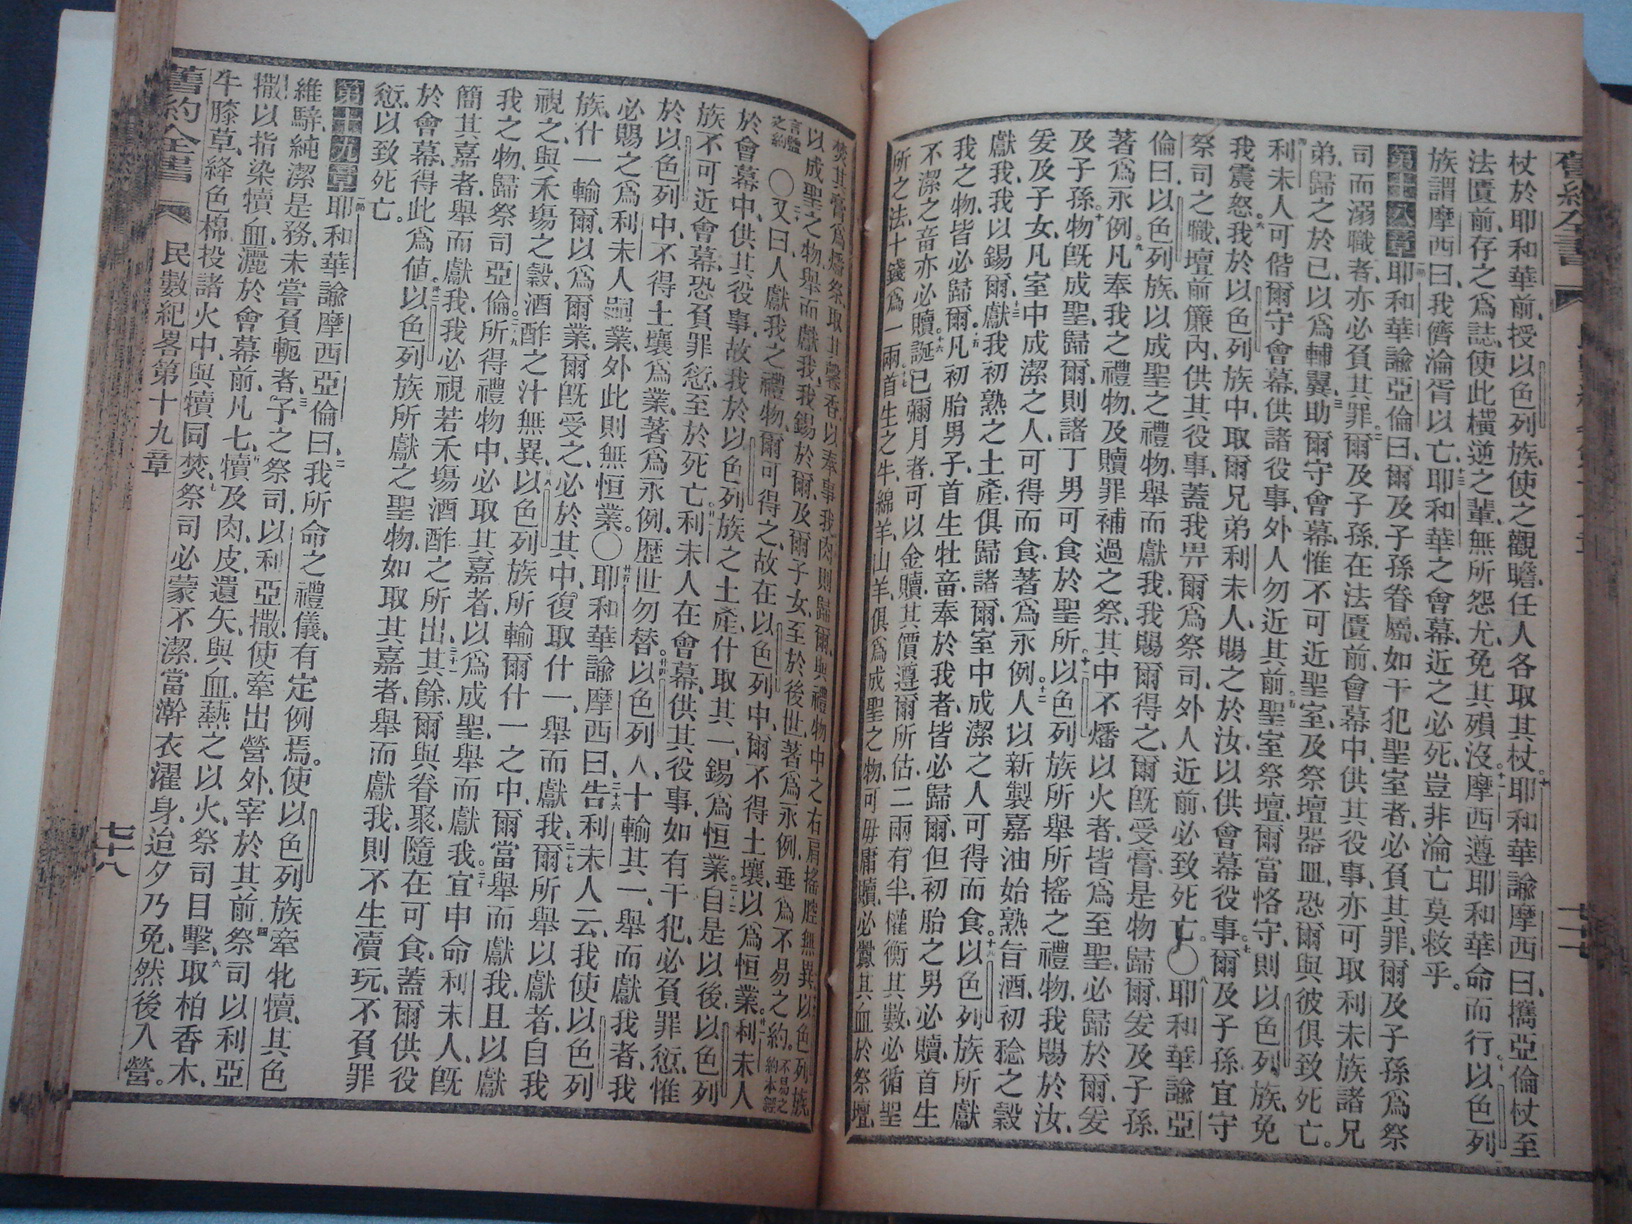 杖於耶和華前授以色列族使之觀瞻任人各取其杖耶和華諭摩西曰攜亞倫杖至
法匱前存之爲誌使此橫逆之輩無所怨尤免其殞沒摩西遵耶和華命而行以色列
族謂摩西曰我儕淪胥以亡耶和華之會幕近之必死豈非淪亡莫救乎
第十八章耶和華諭亞倫曰爾及子孫眷屬如干犯聖室者必負其罪爾及子孫爲祭
司而溺職者亦必負其罪爾及子孫在法匱前會幕中供其役事亦可取利未族諸兄
弟歸之於己以爲輔翼助爾守會幕惟不可近聖室及祭壇器皿恐爾與彼俱致死亡
利未人可偕爾守會幕供諸役事外人勿近其前聖室祭壇爾當恪守則以色列族免
我震怒我於以色列族中取爾兄弟利未人賜之於汝以供會幕役事爾及子孫宜守
祭司之職壇前簾內供其役事蓋我畀爾爲祭司外人近前必致死亡〇耶和華諭亞
倫曰以色列族以成聖之禮物舉而獻我我賜爾得之爾既受膏是物歸爾爰及子孫
著爲永例凡奉我之禮物及贖罪補過之祭其中不燔以火者皆爲至聖必歸於爾爰
及子孫物既成聖歸爾則諸丁男可食於聖所以色列族所舉所搖之禮物我賜於汝
爰及子女凡室中成潔之人可得而食著爲永例人以新製嘉油始熟旨酒初稔之穀
獻我我以錫爾獻我初熟之土產俱歸諸爾室中成潔之人可得而食以色列族所獻
我之物皆必歸爾凡初胎男子首生牡畜奉於我者皆必歸爾但初胎之男必贖首生
不潔之畜亦必贖誕已彌月者可以金贖其價遵爾所估二兩有半權衡其數必循聖
所之法十錢爲一兩首生之牛綿羊山羊俱爲成聖之物可毋庸贖必釁其血於祭壇
焚其膏爲燔祭取其馨香以奉事我肉則歸爾與禮物中之右肩搖腔無異以色列族
以成聖之物舉而獻我我錫於爾及爾子女至於後世著爲永例垂爲不易之約不易之約本經
言鹽之約〇又曰人獻我之禮物爾可得之故在以色列中爾不得土壤以爲恒業利未人
於會幕中供其役事故我於以色列族之土產什取其一錫爲恒業自是以後以色列
族不可近會幕恐負罪愆至於死亡利未人在會幕供其役事如有干犯必負罪愆惟
於以色列中不得土壤爲業著爲永例歷世勿替以色列人十輸其一舉而獻我者我
必賜之爲利未人嗣業外此則無恒業〇耶和華諭摩西曰告利未人云我使以色列
族什一輸爾以爲爾業爾既受之必於其中復取什一舉而獻我爾所舉以獻者自我
視之與禾塲之穀酒酢之汁無異以色列族所輸爾什一之中爾當舉而獻我且以獻
我之物歸祭司亞倫所得禮物中必取其嘉者以爲成聖舉而獻我宜申命利未人旣
簡其嘉者舉而獻我我必視若禾塲酒酢之所出其餘爾與眷聚隨在可食蓋爾供役
於會幕得此爲値以色列族所獻之聖物如取其嘉者舉而獻我則不生瀆玩不負罪
愆以致死亡
第十九章耶和華諭摩西亞倫曰我所命之禮儀有定例焉使以色列族牽牝犢其色
維騂純潔是務未嘗負軛者予之祭司以利亞撒使牽出營外宰於其前祭司以利亞
撒以指染犢血灑於會幕前凡七犢及肉皮遺矢與血爇之以火祭司目擊取柏香木
牛膝草絳色棉投諸火中與犢同焚祭司必蒙不潔當澣衣濯身迨夕乃免然後入營
舊約全書 民數紀畧第十九章 七十八